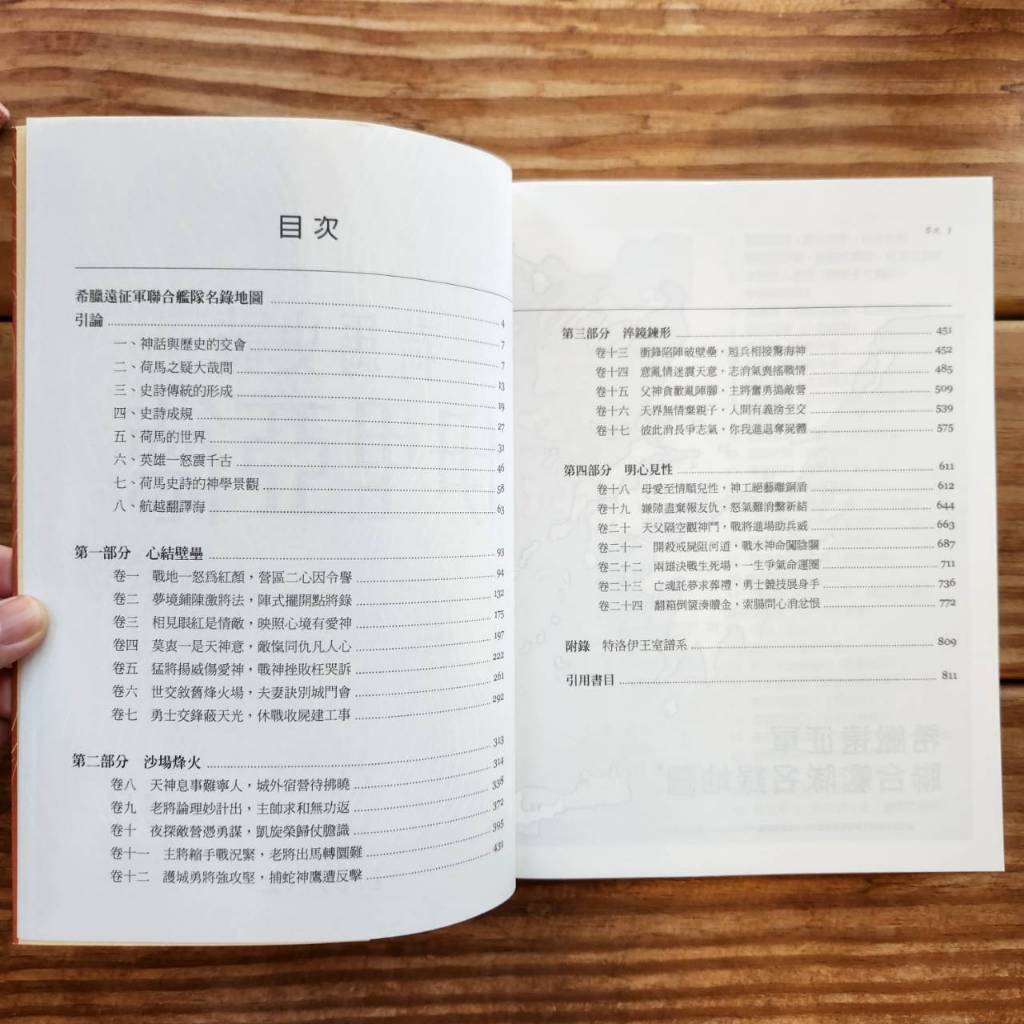 目次
希臘遠征軍聯合艦隊名錄地圖 4
引論 7
一、神話與歷史的交會 7
二、荷馬之疑大哉問 13
三、史詩傳統的形成 19
四、史詩成規 27
五、荷馬的世界 31
六、英雄一怒震千古 46
七、荷馬史詩的神學景觀 58
八、航越翻譯海 63
第一部分 心結壁壘 93
卷一 戰地一怒為紅顏，營區二心因令譽 94
卷二 夢境鋪陳激將法，陣式擺開點將錄 132
卷三 相見眼紅是情敵，映照心境有愛神 175
卷四 莫衷一是天神意，敵愾同仇凡人心 197
卷五 猛將揚威傷愛神，戰神挫敗枉哭訴 222
卷六 世交敘舊烽火場，夫妻訣別城門會 261
卷七 勇士交鋒蔽天光，休戰收屍建工事 292
第二部分 沙場烽火 313
卷八 天神息事難寧人，城外宿營待拂曉 314
卷九 老將論理妙計出，主帥求和無功返 338
卷十 夜探敵營憑勇謀，凱旋榮歸仗膽識 372
卷十一 主將縮手戰況緊，老將出馬轉圜難 395
卷十二 護城勇將強攻堅，捕蛇神鷹遭反擊 431
目次 3
第三部分 淬鏡鍊形 451
卷十三 衝鋒陷陣破壁壘，短兵相接驚海神 452
卷十四 意亂情迷震天意，志消氣喪搖戰情 485
卷十五 父神貪歡亂陣腳，主將奮勇搗敵營 509
卷十六 天界無情棄親子，人間有義捨至交 539
卷十七 彼此消長爭志氣，你我進退奪屍體 575
第四部分 明心見性 611
卷十八 母愛至情順兒性，神工絕藝雕銅盾 612
卷十九 嫌隙盡棄報友仇，怒氣難消繫新結 644
卷二十 天父隔空觀神鬥，戰將進場助兵威 663
卷二十一 開殺戒屍阻河道，戰水神命闖陰關 687
卷二十二 兩雄決戰生死場，一生爭氣命運圈 711
卷二十三 亡魂託夢求葬禮，勇士競技展身手 736
卷二十四 翻箱倒篋湊贖金，索腸問心消忿恨 772
附錄 特洛伊王室譜系 809
引用書目 811